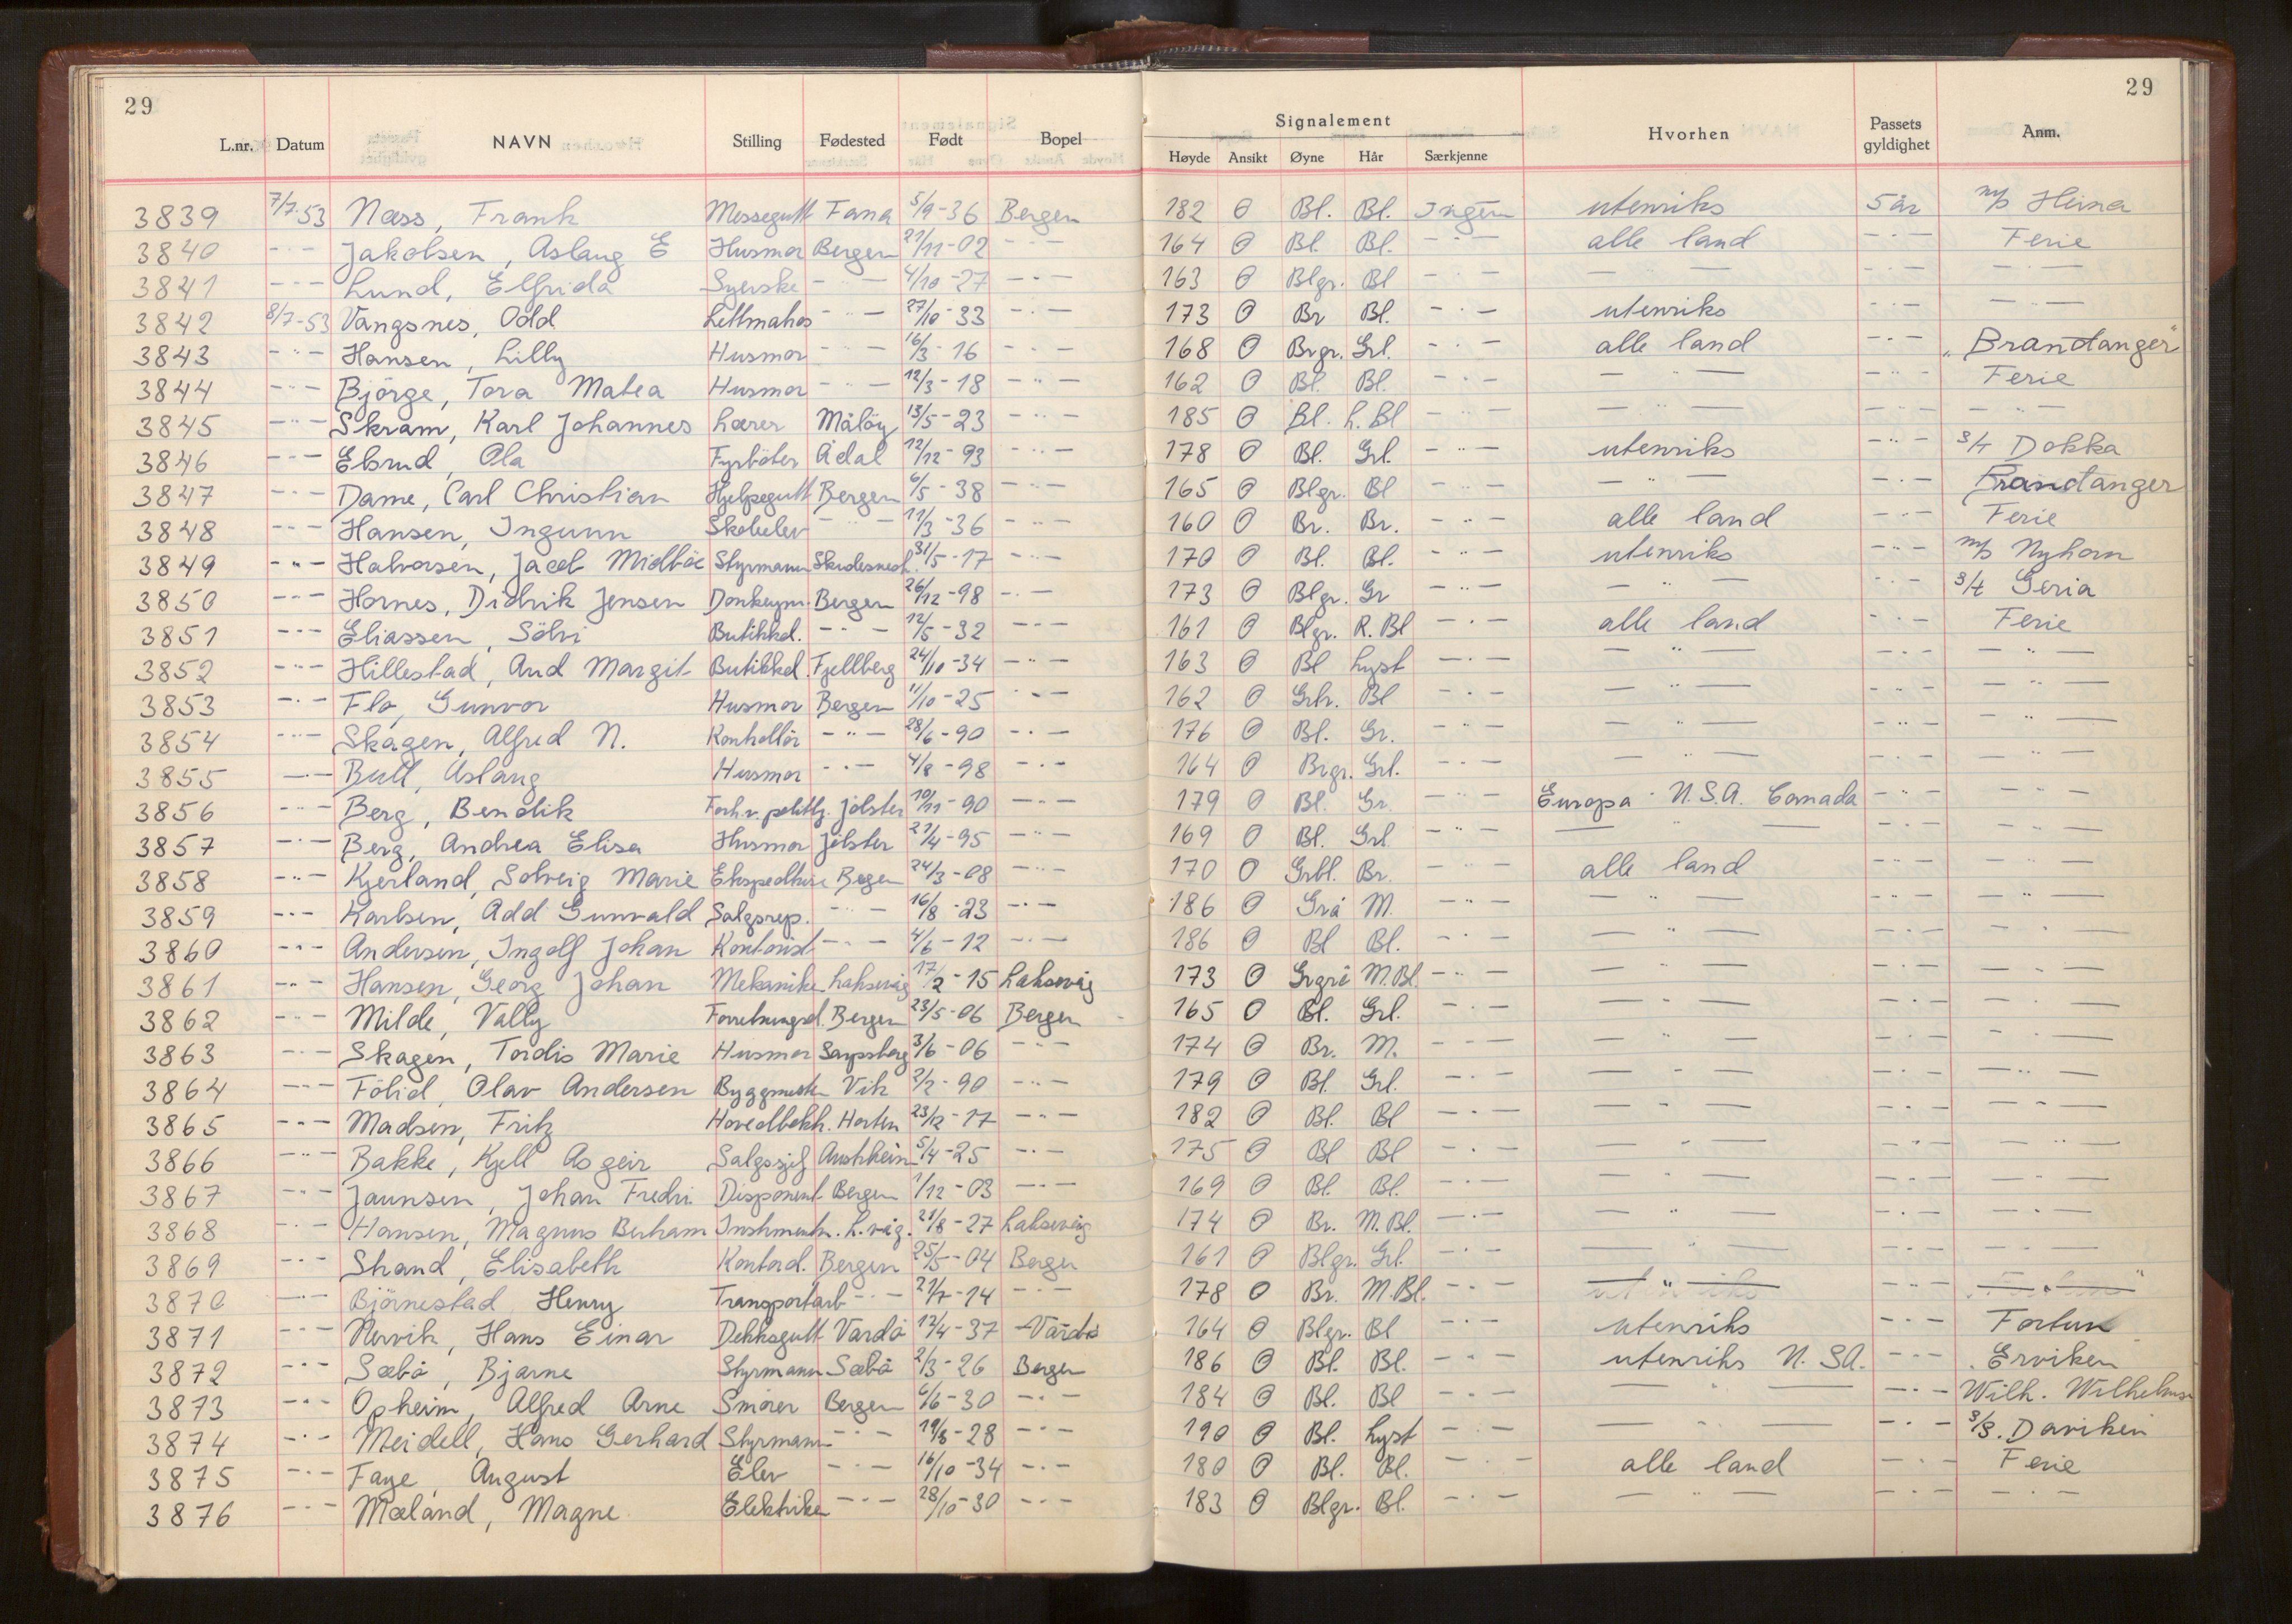 29
29
Signalement
L.nr. Datum NAVN Stilling Fødested Født Bopel Høyde Ansikt Øyne Hår Særkjenne Hvorhen Passets gyldighet Anm.
3839 7/7-53 Næss, Frank Messegutt Fana 5/9-36 Bergen 182 O Bl. Bl. Ingen utenriks 5 år m/s Heina
3840 -"- Jakobsen, Aslaug E Husmor Bergen 21/11-02 -"- 164 O Bl. Bl. -"- alle land -"- Ferie
3841 -"- Lund, Elfrida Syerske -"- 4/10-27 -"- 163 O Blgr. Bl -"- -"- -"- -"-
3842 8/7-53 Vangsnes, Odd Lettmatros -"- 27/10-33 -"- 173 O Br Bl. -"- utenriks -"- -"-
3843 -"- Hansen, Lilly Husmor -"- 16/3-16 -"- 168 O Brgr. Grl. -"- alle land -"- "Brandanger"
3844 -"- Bjørge, Tora Matea Husmor -"- 12/3-18 -"- 162 O Bl. Bl. -"- -"- -"- Ferie
3845 -"- Skram, Karl Johannes Lærer Måløy 13/5-23 -"- 185 O Bl. L.Bl -"- -"- -"- -"-
3846 -"- Elsrud, Ola Fyrbøter Ådal 12/12-93 -"- 178 O Bl. Grl. -"- utenriks -"- s/t Dokka
3847 -"- Dame, Carl Christian Hjelpegutt Bergen 6/5-38 -"- 165 O Blgr. Bl -"- -"- -"- Brandanger
3848 -"- Hansen, Ingunn Skoleelev -"- 11/3-36 -"- 160 O Br. Br. -"- alle land -"- Ferie
3849 -"- Halvorsen, Jacob Midbøe Styrmann Skudesnesh. 31/5-17 -"- 170 O Bl. Bl. -"- utenriks -"- m/s Nyhorn
3850 -"- Hornes, Didrik Jensen Donkeym. Bergen 26/12-98 -"- 173 O Blgr. Gr -"- -"- -"- s/t Geria
3851 -"- Eliassen, Sölvi Butikkd. -"- 12/5-32 -"- 161 O Blgr. R.Bl -"- alle land -"- Ferie
3852 -"- Hillestad, Aud Margit Butikkd. Fjellberg 24/10-34 -"- 163 O Bl Lyst -"- -"- -"- -"-
3853 -"- Flo, Gunvor Husmor Bergen 11/10-25 -"- 162 O Grbr. Bl -"- -"- -"- -"-
3854 -"- Skagen, Alfred N. Kontrollör -"- 28/6-90 -"- 176 O Bl. Gr. -"- -"- -"- -"-
3855 -"- Bull, Aslaug Husmor -"- 4/8-98 -"- 164 O Brgr. Grl. -"- -"- -"- -"-
3856 -"- Berg, Bendik Forh.v. politik. Jølster 10/11-90 -"- 179 O Bl. Gr. -"- Europa U.S.A. Canada -"- -"-
3857 -"- Berg, Andrea Elisa Husmor Jølster 21/4-95 -"- 169 O Bl. Grl. -"- -"- -"- -"-
3858 -"- Kjerland, Solveig Marie Ekspeditrise Bergen 24/3-08 -"- 170 O Grbl. Br. -"- alle land -"- -"-
3859 -"- Karlsen, Odd Gunvald Salgsrep. -"- 16/8-23 -"- 186 O Grå M. -"- -"- -"- -"-
3860 -"- Andersen, Ingolf Johan Kontorist -"- 4/6-12 -"- 186 O Bl Bl. -"- -"- -"- -"-
3861 -"- Hansen, Georg Johan Mekanike Laksevåg 17/2-15 Laksevåg 173 O Grgrå M.Bl. -"- -"- -"- -"-
3862 -"- Milde, Vally Forretningsd. Bergen 23/5-06 Bergen 165 O Bl. Grl. -"- -"- -"- -"-
3863 -"- Skagen, Tordis Marie Husmor Sarpsborg 3/6-06 -"- 174 O Br. M. -"- -"- -"- -"-
3864 -"- Fölid, Olav Andersen Byggmester Vik 2/2-90 -"- 179 O Bl. Grl. -"- -"- -"- -"-
3865 -"- Madsen, Fritz Hovedbokh. Horten 23/12-17 -"- 182 O Bl. Bl -"- -"- -"- -"-
3866 -"- Bakke, Kjell Asgeir Salgssjef Austrheim 5/4-25 -"- 175 O Bl Bl -"- -"- -"- -"-
3867 -"- Jaunsen, Johan Fredri Disponent Bergen 1/12-03 -"- 169 O Bl. Bl. -"- -"- -"- -"-
3868 -"- Hansen, Magnus Berham Instrumentm. L.våg. 21/8-27 Laksevåg 174 O Br. M.Bl. -"- -"- -"- -"-
3869 -"- Strand, Elisabeth Kontord. Bergen 25/5-04 Bergen 161 O Blgr. Grl. -"- -"- -"- -"-
3870 -"- Björnestad, Henry Transportarb -"- 21/7-14 -"- 178 O Br. M.Bl. -"- -"- -"- -"-
3871 -"- Nervik, Hans Einar Dekksgutt Vardø 12/4-37 Vardø 164 O Blgr. Bl -"- utenriks -"- Fortun
3872 -"- Sæbö, Bjarne Styrmann Sæbö 2/3-26 Bergen 186 O Bl. Bl. -"- utenriks U.SA. -"- Erviken
3873 -"- Opheim, Alfred Arne Smörer Bergen 6/6-30 -"- 184 O Bl. Bl -"- -"- -"- Wilh. Wilhelmsen
3874 -"- Meidell, Hans Gerhard Styrmann -"- 19/8-28 -"- 190 O Bl. Lyst -"- -"- -"- s/s. Daviken
3875 -"- Faye, August Elev -"- 16/10-34 -"- 180 O Bl. Bl. -"- alle land -"- Ferie
3876 -"- Mæland, Magne Elektriker -"- 28/10-30 -"- 183 O Blgr. Bl. -"- -"- -"- -"-